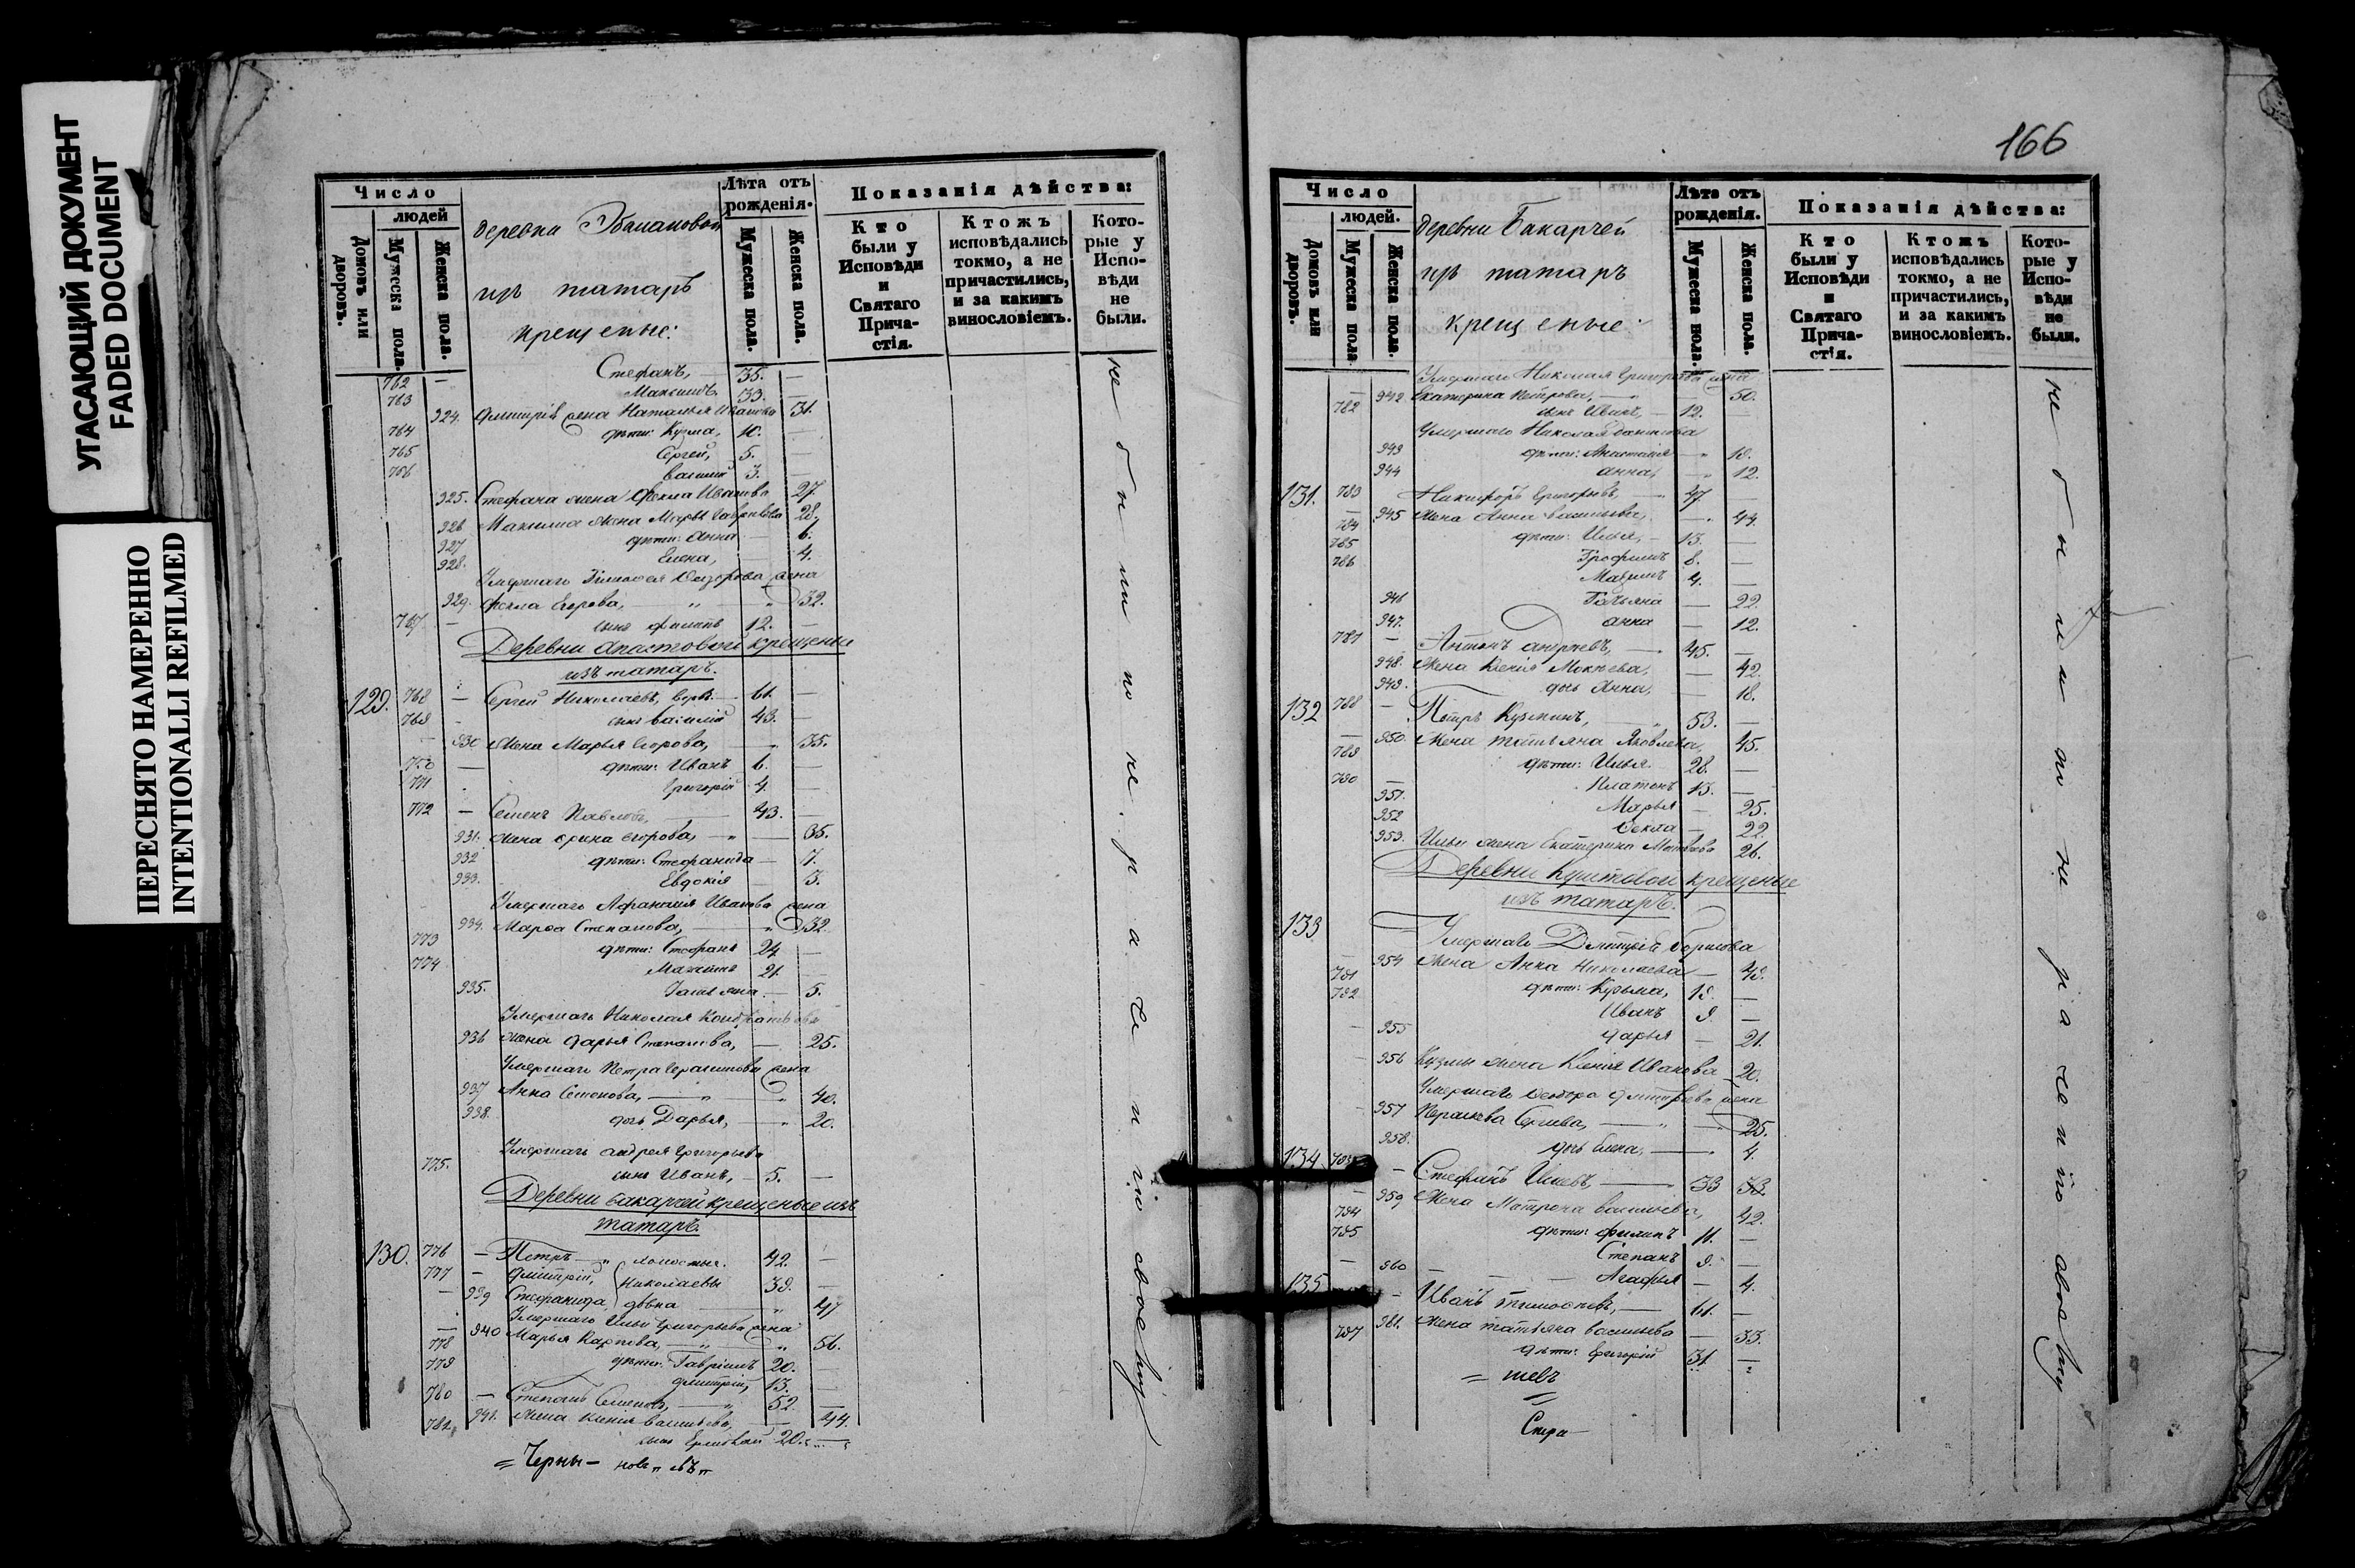 УГАСАЮЩИЙ ДОКУМЕНТ
FADED DOCUMENT
ПЕРЕСНЯТО НАМЕРЕННО
INTENTIONALLI REFILMED
Число
людей
Домовъ или дворовъ.
Мужеска пола.
Женска пола.
деревни
изъ татаръ
крещеные:
Лѣта отъ рожденія.
Мужеска пола.
Женска пола.
Показанія дѣйства:
Кто были у Исповѣди и Святаго Причастія.
Ктожъ исповѣдались токмо, а не причастились, и за какимъ винословіемъ.
Которые у Исповѣди не были.
762 — Стефанъ, 35. —
763 Максимъ 33. —
924. Дмитрія жена Наталья Иванова 31.
764 дѣти: Кузма, 10. —
765 Сергей, 5. —
766 Василий 3. —
925. Стефана жена Фекла Иванова 27.
926 Максима жена Марья Гаврилова 28.
927 дѣти: Анна 6.
928. Елена, 4.
Умершаго Тимофея жена
929. Фекла Егорова, — 32.
767 — сынъ Филипъ 12. —
Деревни Апастовой крещеные
изъ татаръ.
129. 768 — Сергей Николаевъ, 61. —
769 сынъ Василий 43. —
— 930 Жена Марья Егорова, — 35.
770 — дѣти: Иванъ 6. —
771 Григорій 4. —
772 — Семенъ Павловъ, 43. —
931. Жена Ирина Егорова, — 35.
932 дѣти: Стефанида — 7.
933. Евдокія 3.
Умершаго Афанасия Иванова жена
934. Марѳа Степанова, 32.
773 дѣти: Стефанъ 24 —
774 Максимъ 21. —
935. Татьяна — 5.
Умершаго Николая Кондратьева
936 Жена Дарья Степанова, — 25.
Умершаго Петра Герасимова жена
937 Анна Семенова, — 40.
938. дочь Дарья, — 20.
Умершаго Андрея Григорьева
775. сынъ Иванъ, — 5. —
Деревни Бакарчей крещеные изъ
татаръ.
130. 776 — Петръ 42. —
777 — Дмитрій, Николаевы 39. —
— 939 Стефанида, дѣвка 47
Умершаго Ильи Григорьева жена
— 940 Марья Карпова, — 56.
778 дѣти: Гавріилъ 20. —
779 Дмитрій, 13. —
780 — Степанъ Семеновъ, 52. —
941. Жена Ксенія Васильева, — 44.
781. сынъ 20. —
не были по нерачению своему
166
Число
людей.
Домовъ или дворовъ.
Мужеска пола
Женска пола.
Деревни Бакарчей
изъ татаръ
крещеные:
Лѣта отъ рожденія.
Мужеска пола.
Женска пола.
Показанія дѣйства:
Кто были у Исповѣди и Святаго Причастія.
Ктожъ исповѣдались токмо, а не причастились, и за какимъ винословіемъ.
Которые у Исповѣди не были.
Умершаго Николая Григорьева жена
— 942 Екатерина Петрова, — 50.
782 сынъ Иванъ, — 12. —
Умершаго Николая
943 дѣти: Анастасія — 19.
944 Анна, 12.
131. 783 Никифоръ Григорьевъ, — 47 —
— 945 Жена Анна Васильева, — 44.
784 дѣти: Илья, — 13. —
785 Трофимъ 8. —
786 Максимъ 4. —
946 Татьяна — 22.
947. Анна — 12.
787 — Антонъ Андреевъ, — 45. —
948. Жена Ксенія — 42.
949. дочь Анна, — 18.
132 788 — Петръ Кузминъ, 53. —
— 950. Жена Татьяна Яковлева, 45.
789 дѣти: Илья 28. —
790 Платонъ 13. —
951. Марья — 25.
952 Ѳекла — 22.
953. Ильи жена Екатерина Матвѣева 26.
Деревни крещеные
изъ татаръ.
133 Умершаго Дмитрія Борисова
— 954 Жена Анна Николаева — 49.
791 дѣти: Кузьма, 19. —
792 Иванъ 9. —
— 955 Дарья — 21.
— 956 Кузмы жена Ксенія Иванова 20.
Умершаго Ѳедора Дмитріева жена
— 957 Сергеева, — 25.
958. дочь Елена, — 4.
134. — Стефанъ Ильевъ, — 33
— 959 Жена Матрона Васильева, 42.
794 дѣти: Филипъ 11. —
795 Степанъ 9. —
— 960 — Агафья — 4.
135 — Иванъ Тимофеевъ, — 61. —
961. Жена Татьяна Васильева — 33.
797 дѣти: Григорій 31. —
не были по нерачению своему